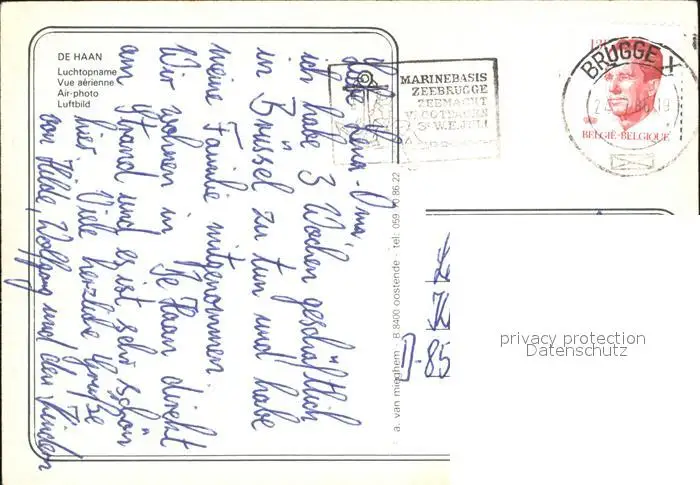 DE HAAN
Luchtopname
Vue aérienne
Air-photo
Luftbild
Liebe Lena-Oma,
ich habe 3 Wochen geschäftlich
in Brüssel zu tun und habe
meine Familie mitgenommen.
Wir wohnen in De Haan direkt
am Strand und es ist sehr schön
hier. Viele herzliche Grüße
von Hilde, Wolfgang und den Kindern
a. van mieghem - B 8400 oostende - tel: 059 70 86 22
MARINEBASIS
ZEEBRUGGE
ZEEMACHT
VLOOTDAGEN
3e W.E. JULI
BRUGGE X
BELGIË-BELGIQUE
D-85
privacy protection
Datenschutz